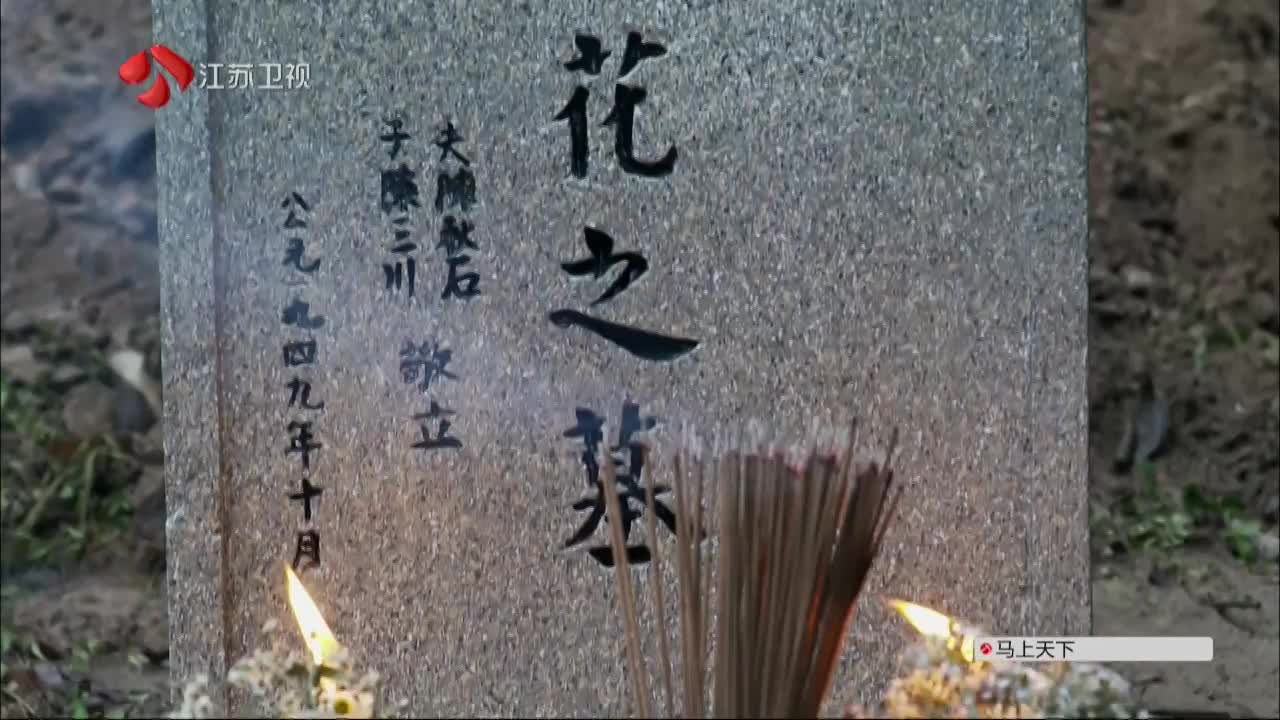 江苏卫视
花之墓
夫陈秋石
子陈三川
敬立
公元一九四九年十月
马上天下